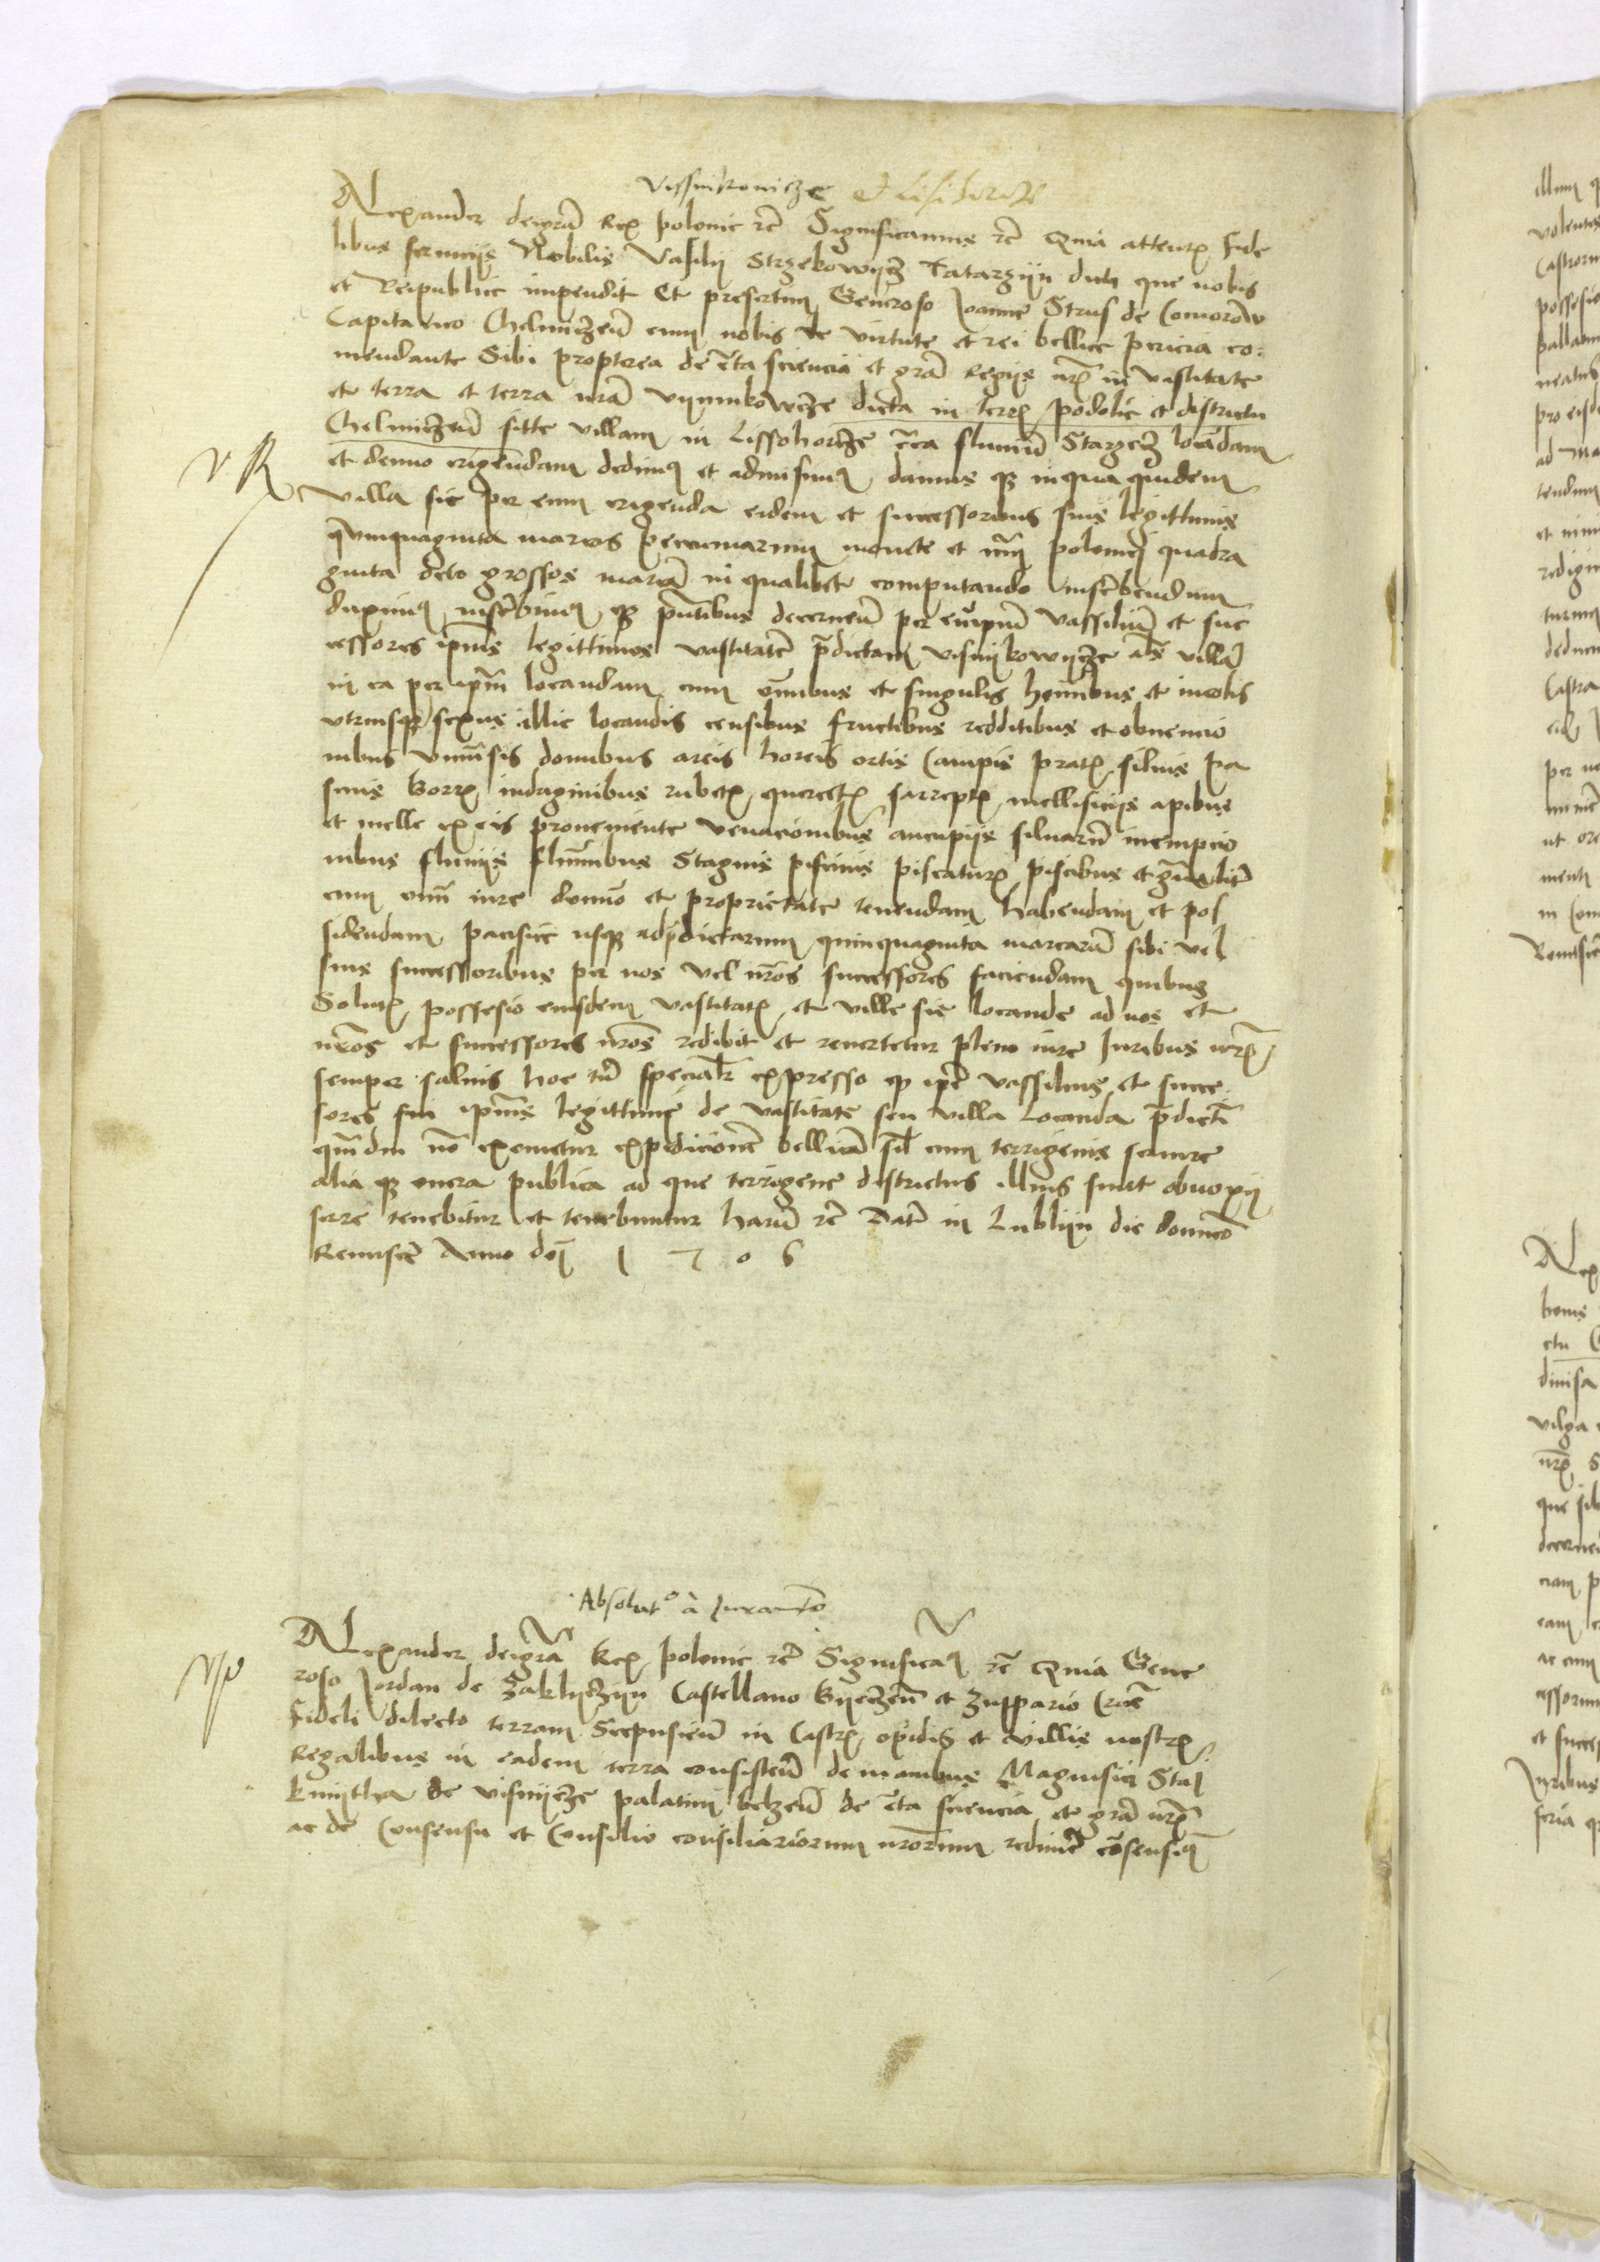 Vissnikowicze
Alexander deigrã Rex polonie rc̃ Significamus rc̃ Quia attentꝭ Fide
libus servicijs Nobilis Vasilij Strzekowijcz Tatarzijn dicti que nobis
et Reipublic impendit Et presertim Generoso Joanne Strus de Comorow
Capitaneo Chelmiczeñ eum nobis de virtute et rei bellice pericia co-
mendante Sibi propterea de c̃ta sciencia et grã Regijs nrĩs in vastitate
et terra et terra nrã Vijsnikowcze dicta in terrꝭ podolie et districtu
Chelmiczeñ sitte villam in Lissohorcze c̃ca fluviũ Starzecz locãdam
et denuo erigendam dedimꝰ et admisimꝰ damus qꝫ in qua quidem
VR
villa sic per eum erigenda eidem et successoribus suis legittimis
quinquaginta marcas pecuniarum monete et nũi polonici quadra
ginta octo grossos marcã in qualibet computando inscribendum
duximꝰ inscribimꝰ qꝫ pñtibus decerneñ per eũ ipm̃ vassiliũ et suc
cessores ipsiꝰ legittimos vastitatẽ p̃dictam visnijkowijcze aľs villã
in ea per ipm̃ locandam cum om̃ibus et singulis hoĩnibus et incolis
utriusqꝫ sexus illic locandis censibus fructibus redditibus et obvencio
nibus univẽsis domibus areis horeis ortis Campis pratꝭ silvis pa
scuis Borrꝭ indaginibus rubetꝭ quercetꝭ sarreptꝭ mellificijs apibus
et melle ex eis proveniente venacionibus aucupijs silvarũ incempcio
nibus fluvijs flum̃ibus Stagnis piscinis piscaturꝭ piscibus et gñaliter
cum om̃i iure dom̃o et proprietate tenendam habendam et pos
sidendam pacifice usqꝫ ad p̃dictarum quinquaginta marcarũ sibi vel
suis successoribus per nos vel nrõs successores faciendam quibus
Solutꝭ possessio eiusdem vastitatꝭ et ville sic locande ad nos et
nrõs et successores nrõs redibit et revertetur pleno iure Juribus nrĩs
semper salvis hoc tñ specialiter expresso qꝫ ipẽ vassilius et succe
sores sui ipsiꝰ legittimi de vastitate seu villa locanda p̃dictꝭ
quãdiu nõ exemetur expedicionẽ bellicã simľ cum terrigenis servire
alia qꝫ onera publica ad que terrigene districtus illius sunt obnoxij
ferre tenebitur et tenebuntur harũ rc̃ Datẽ in Lublijn die dominco
Reminiscẽ Anno dnĩ 1 5 0 6
Absolutº à Juramẽto
Alexander deigrã Rex polonie rc̃ Significaꝰ rc̃ Quia Gene
roso Jordan de Zaklijczijn Castellano Bijeczeñ et Zuppario Craĉ
Fideli dilecto terram Scepusieñ in Castrꝭ opidis et villis nostrꝭ
Regalibus in eadem terra consisteñ de manibus Magnifici Stai
kmijtha de visnijcze palatini belzeñ de c̃ta sciencia et grã nrã
ac de Consensu et Consilio consiliariorum nrõrum redimẽ cõsensimꝰ